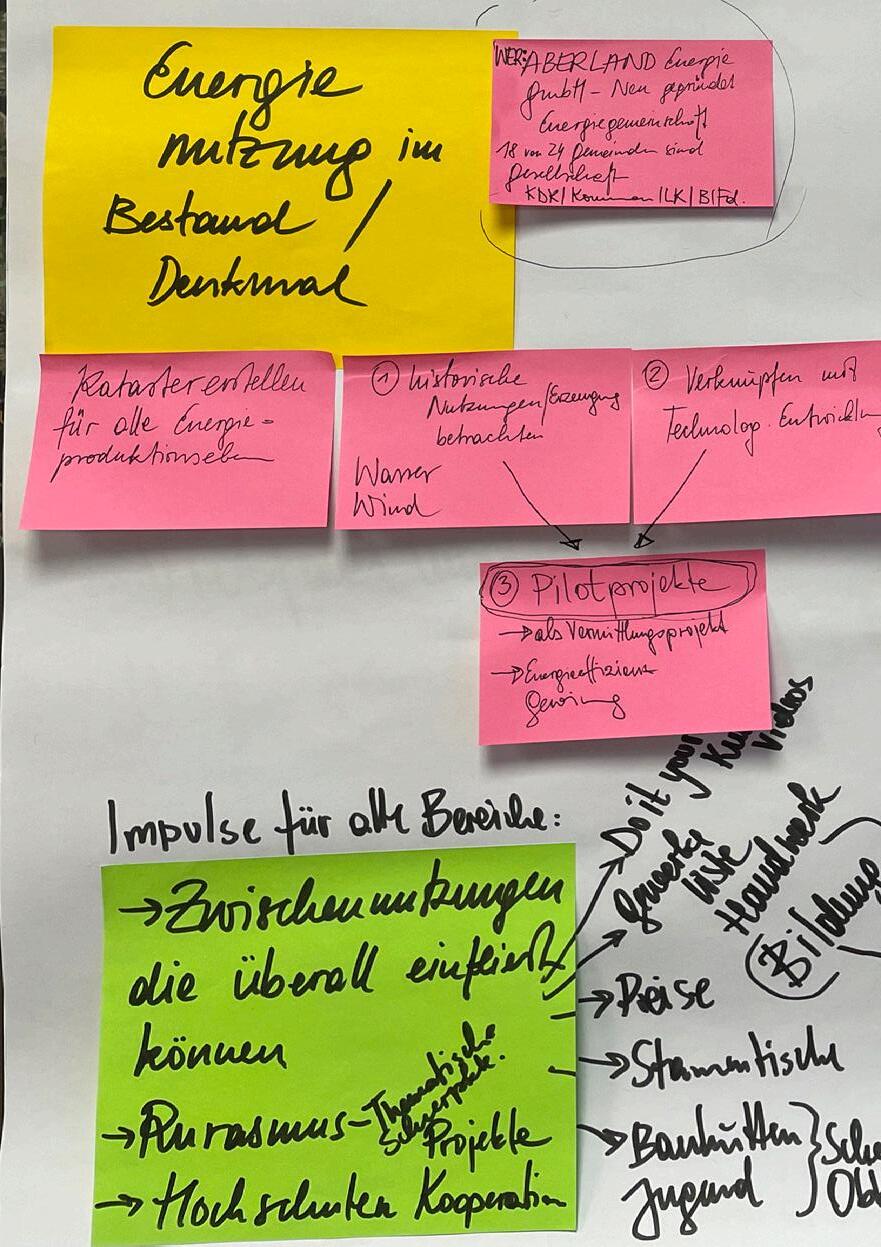 Energie
nutzung im
Bestand /
Denkmal
WER: ABERLAND Energie
GmbH – Neu gegründet
Energiegemeinschaft
18 von 24 Gemeinden sind
Gesellschaft
KDK/Kommunen/LK/BIFd.
Kataster erstellen
für alle Energie=
produktionseben
① historische
Nutzungen/Erzeugung
betrachten
Wasser
Wind
② Verknüpfen mit
Technolog. Entwicklun
③ Pilotprojekte
→ als Vermittlungsprojekt
→ Energieeffizienz
Gewinnung
Impulse für alle Bereiche:
→ Zwischennutzungen
die überall einfließen
können
→ Rurasmus – Thematische
Schwerpkte.
Projekte
→ Hochschulen Kooperation
Do it your
Videos
Gewerke
liste
Handwerk
Bildung
→ Preise
→ Stammtische
→ Bauhütten
Jugend